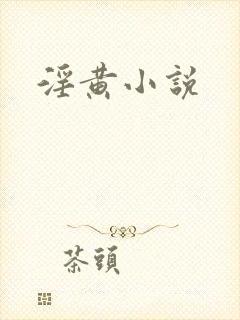 淫黄小説
茶頭